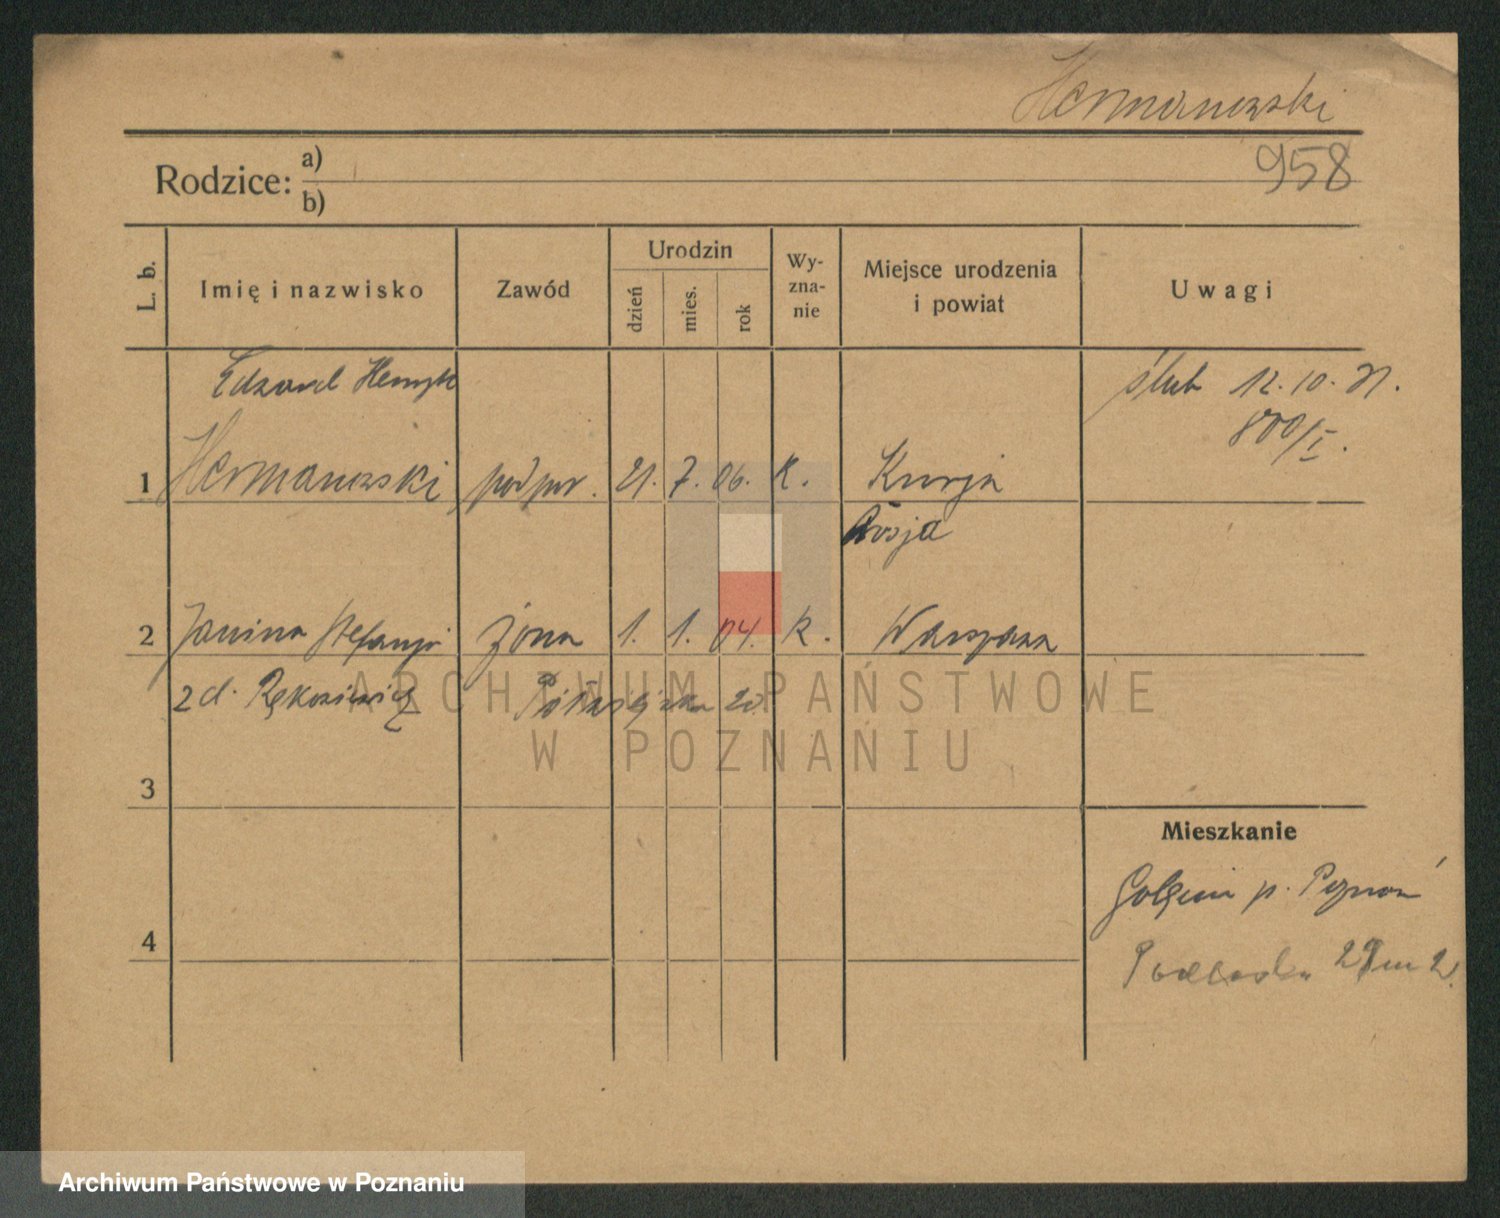 Hermanowski
958
Rodzice: a)
b)
L. b.
Imię i nazwisko
Zawód
Urodzin
dzień
mies.
rok
Wy-
zna-
nie
Miejsce urodzenia
i powiat
Uwagi
Edward Henryk
ślub 12.10.31.
800/I.
1 Hermanowski podpor. 21. 7. 06. K.
Rosja
2 Janina Stefanja żona 1. 1. 04. K. Warszawa
z d.
20
3
Mieszkanie
Golęcin p. Poznań
4
Podlaska m 2.
ARCHIWUM PAŃSTWOWE
W POZNANIU
Archiwum Państwowe w Poznaniu